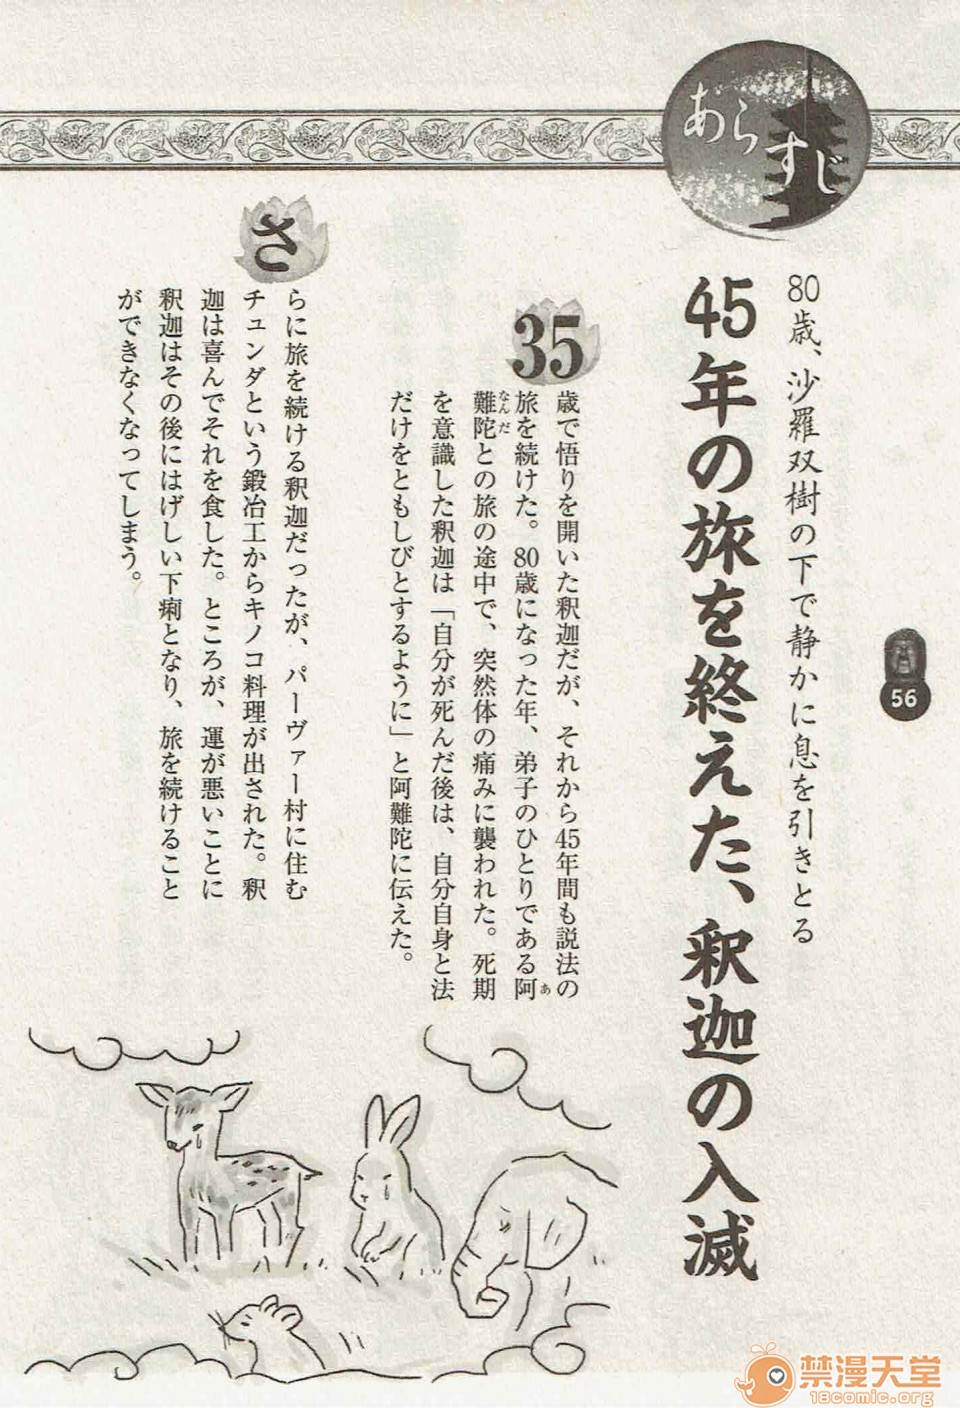 あらすじ
80歳、沙羅双樹の下で静かに息を引きとる
45年の旅を終えた、釈迦の入滅
56
35
歳で悟りを開いた釈迦だが、それから45年間も説法の
旅を続けた。80歳になった年、弟子のひとりである阿
あ
難陀との旅の途中で、突然体の痛みに襲われた。死期
なんだ
を意識した釈迦は「自分が死んだ後は、自分自身と法
だけをともしびとするように」と阿難陀に伝えた。
さ
らに旅を続ける釈迦だったが、パーヴァー村に住む
チュンダという鍛冶工からキノコ料理が出された。釈
迦は喜んでそれを食した。ところが、運が悪いことに
釈迦はその後にはげしい下痢となり、旅を続けること
ができなくなってしまう。
禁漫天堂
18comic.org